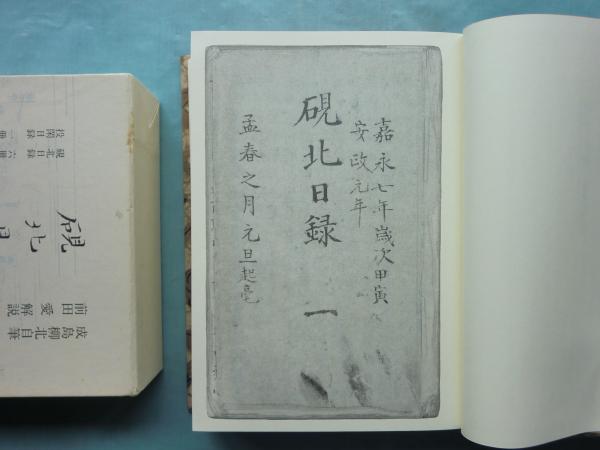 嘉永七年歳次甲寅
安政元年
硯北日録 一
孟春之月元旦起毫
硯北日
硯北日録 六冊
投閑日録 一冊
成島柳北自筆
前田愛解説